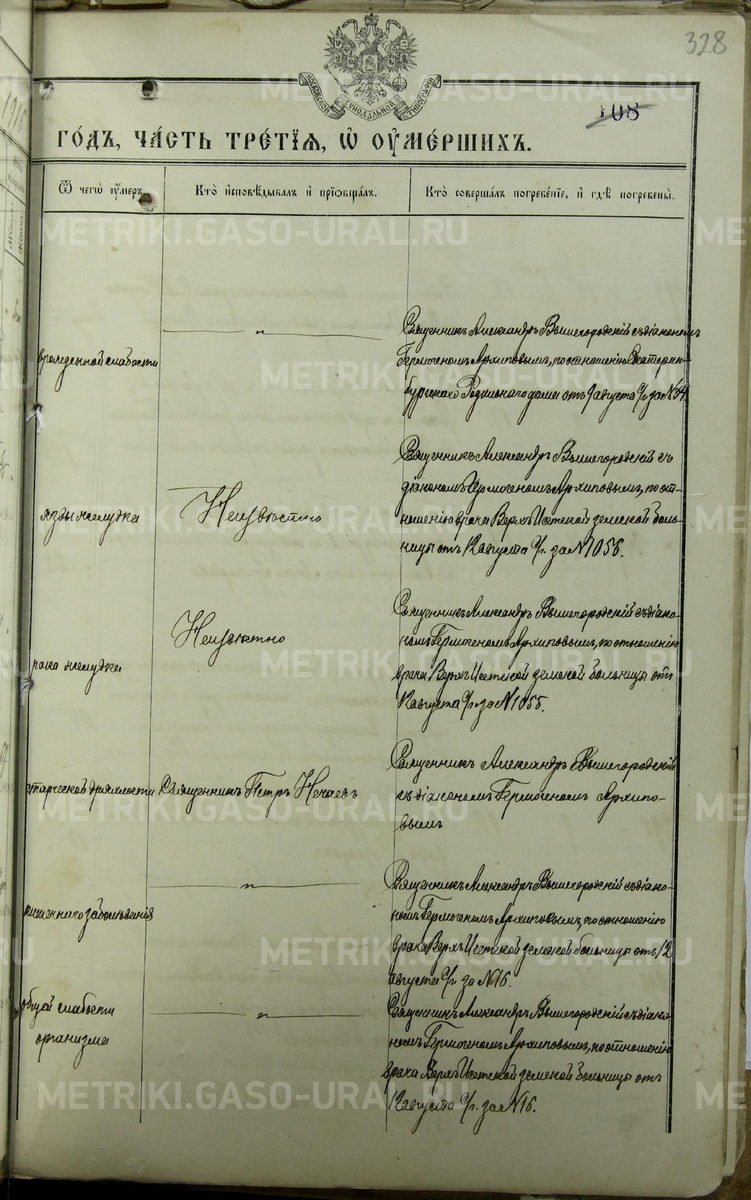 328
108
МОСКОВСКОЙ СѴНОДАЛЬНОЙ ТИПОГРАФІИ
1916
ГО́ДЪ, ЧА́СТЬ ТРЕ́ТІѦ, Ѡ҆ ОУ҆МЕ́РШИХЪ.
Ѿ чегѡ̀ ᲂу҆́меръ.
Кто̀ и҆сповѣ́дывалъ и҆ прїѡбща́лъ.
Кто̀ соверша́лъ погребе́нїе, и҆ гдѣ̀ погребены̀.
врожденной слабости
— " —
Священникъ Александръ Вышегородскій съ діакономъ
Гермогеномъ Архиповымъ, по отношенію Екатерин-
бургскаго Родильнаго дома отъ 9 августа с/г. за №
язвы желудка
Неизвѣстно
Священникъ Александръ Вышегородскій съ
діакономъ Гермогеномъ Архиповымъ, по от-
ношенію врача Верхъ-Исетской земской боль-
ницы отъ 12 августа с/г. за № 1056.
рака желудка
Неизвѣстно
Священникъ Александръ Вышегородскій съ діако-
номъ Гермогеномъ Архиповымъ, по отношенію
врача Верхъ-Исетской земской больницы отъ
12 августа с/г. за № 1055.
старческой дряхлости
Священникъ Петръ Нечаевъ
Священникъ Александръ Вышегородскій
съ діакономъ Гермогеномъ Архипо-
вымъ
кишечнаго заболѣванія
— " —
Священникъ Александръ Вышегородскій съ діако-
номъ Гермогеномъ Архиповымъ, по отношенію
врача Верхъ-Исетской земской больницы отъ 12
августа с/г. за № 16.
общей слабости
организма
— " —
Священникъ Александръ Вышегородскій съ діако-
номъ Гермогеномъ Архиповымъ, по отношенію
врача Верхъ-Исетской земской больницы отъ
12 августа с/г. за № 16.
METRIKI.GASO-URAL.RU